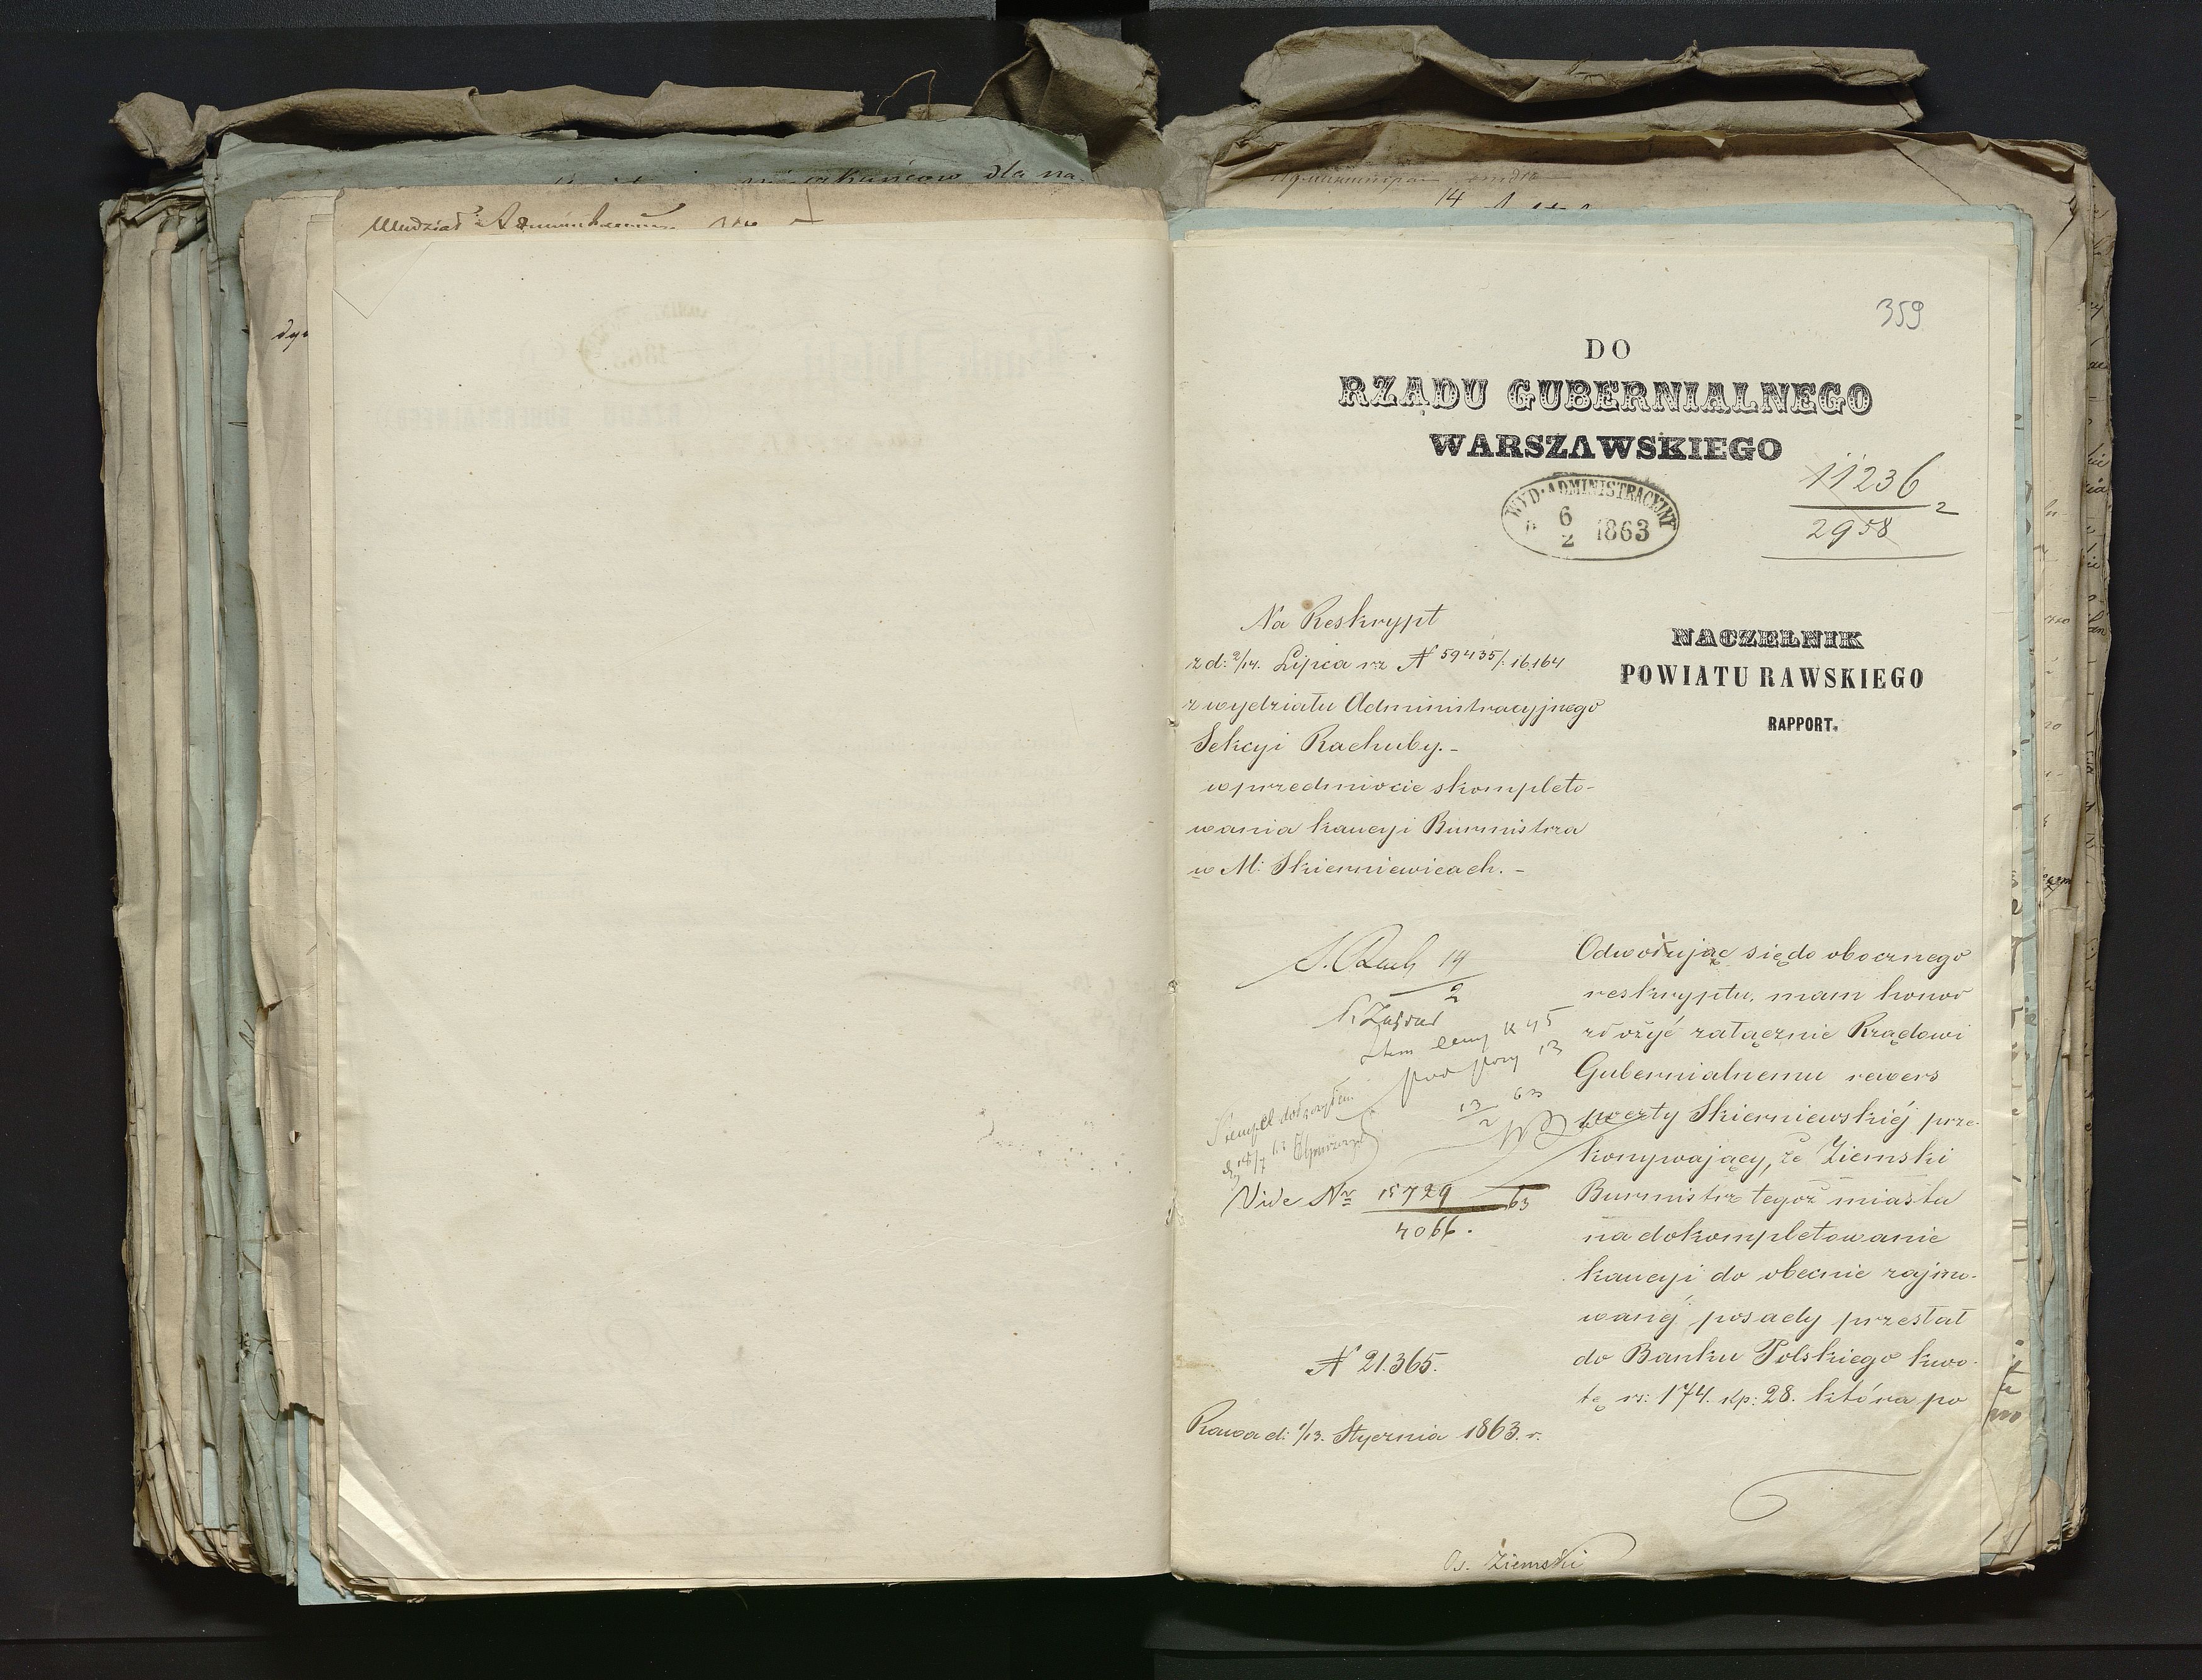 dla na-
Wydział
14
359
DO
RZĄDU GUBERNIALNEGO
WARSZAWSKIEGO
WYD. ADMINISTRACYJNY
6
2 1863
11236
2958 2
Na Reskrypt
z d: 2/14. Lipca rz N 59435/16.164
z wydziału Administracyjnego
Sekcyi Rachuby. -
w przedmiocie skompleto-
wania kaucyi Burmistrza
w M: Skierniewicach. -
NACZELNIK
POWIATU RAWSKIEGO
RAPPORT.
Odwołując się do obocznego
reskryptu, mam honor
złożyć załącznie Rządowi
Gubernialnemu rewers
poczty Skierniewskiéj prze-
konywający, że Ziemski
Burmistrz tegoż miasta
na dokompletowanie
kaucyi do obecnie zajmo-
wanéj posady przesłał
do Banku Polskiego kwo-
tę rs: 174. kp: 28. która po
S. Rach 14
2
13 63
2
Vide Nr 15729 63
4066.
N 21.365.
Rawa d: 1/13. Stycznia 1863. r.
Os. Ziemski